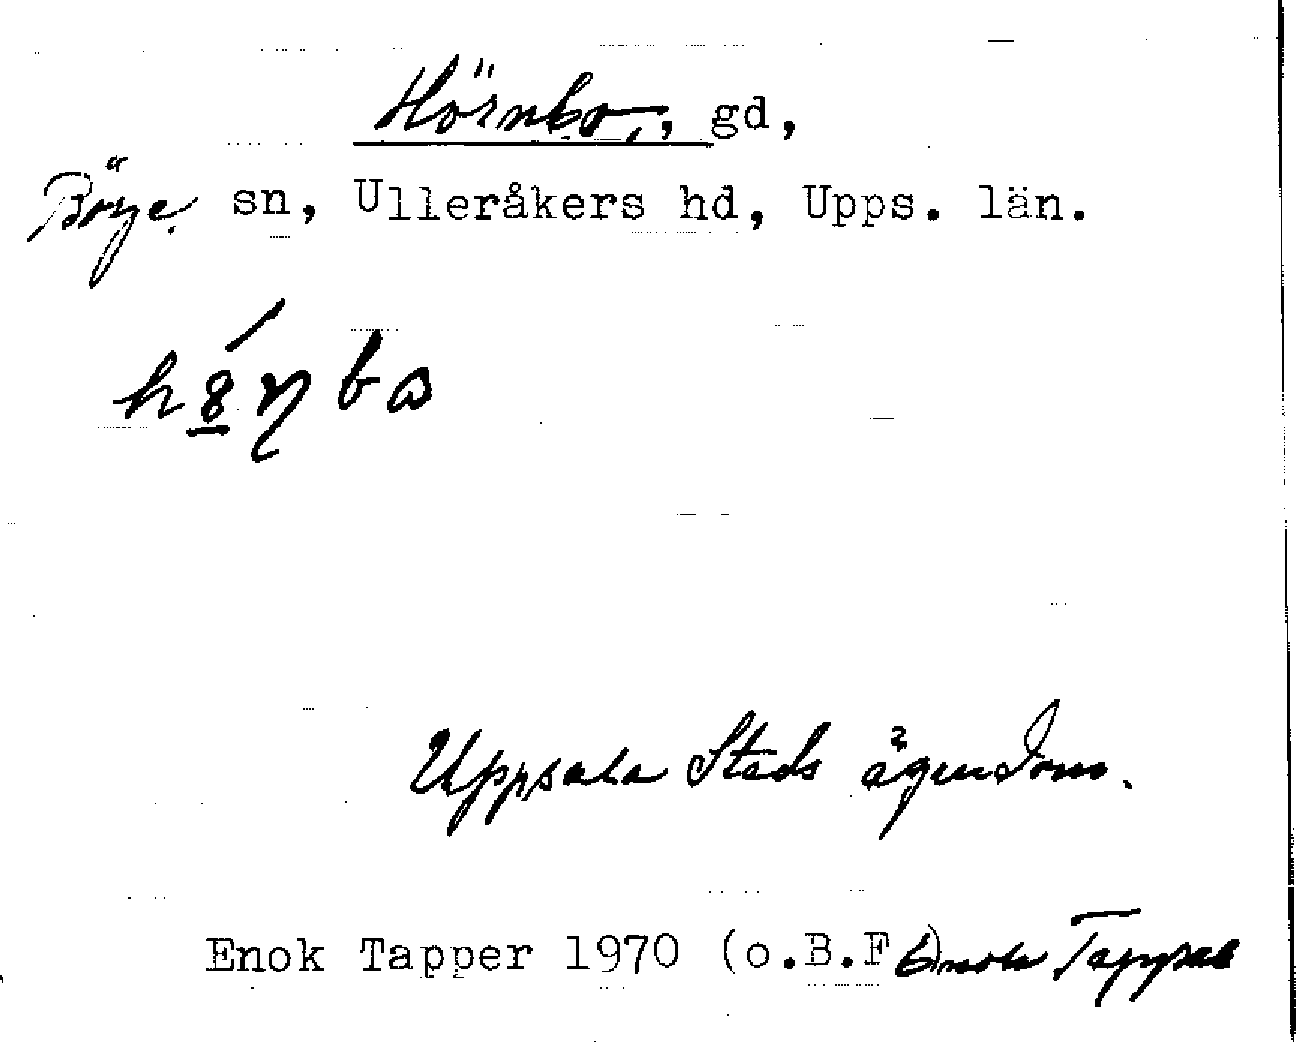 Hörnbo, gd,
Börje sn, Ulleråkers hd, Upps. län.
Uppsala Stads ägendom.
Enok Tapper 1970 (o.B.F) Enok Tapper